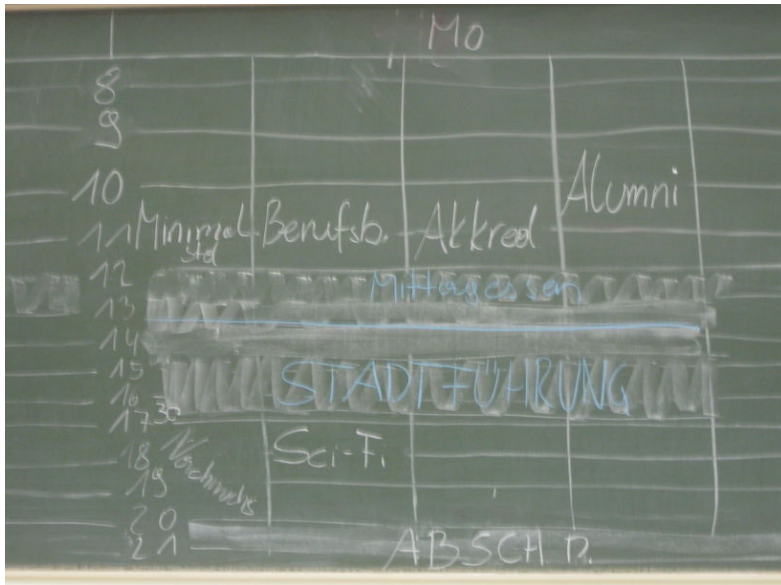 Mo
8
9
10
Alumni
11 Minimal Berufsb. Akkred.
std
12
Mittagessen
13
14
15
STADTFÜHRUNG
16
17 30
18 Sci-Fi
19
20
21 ABSCH